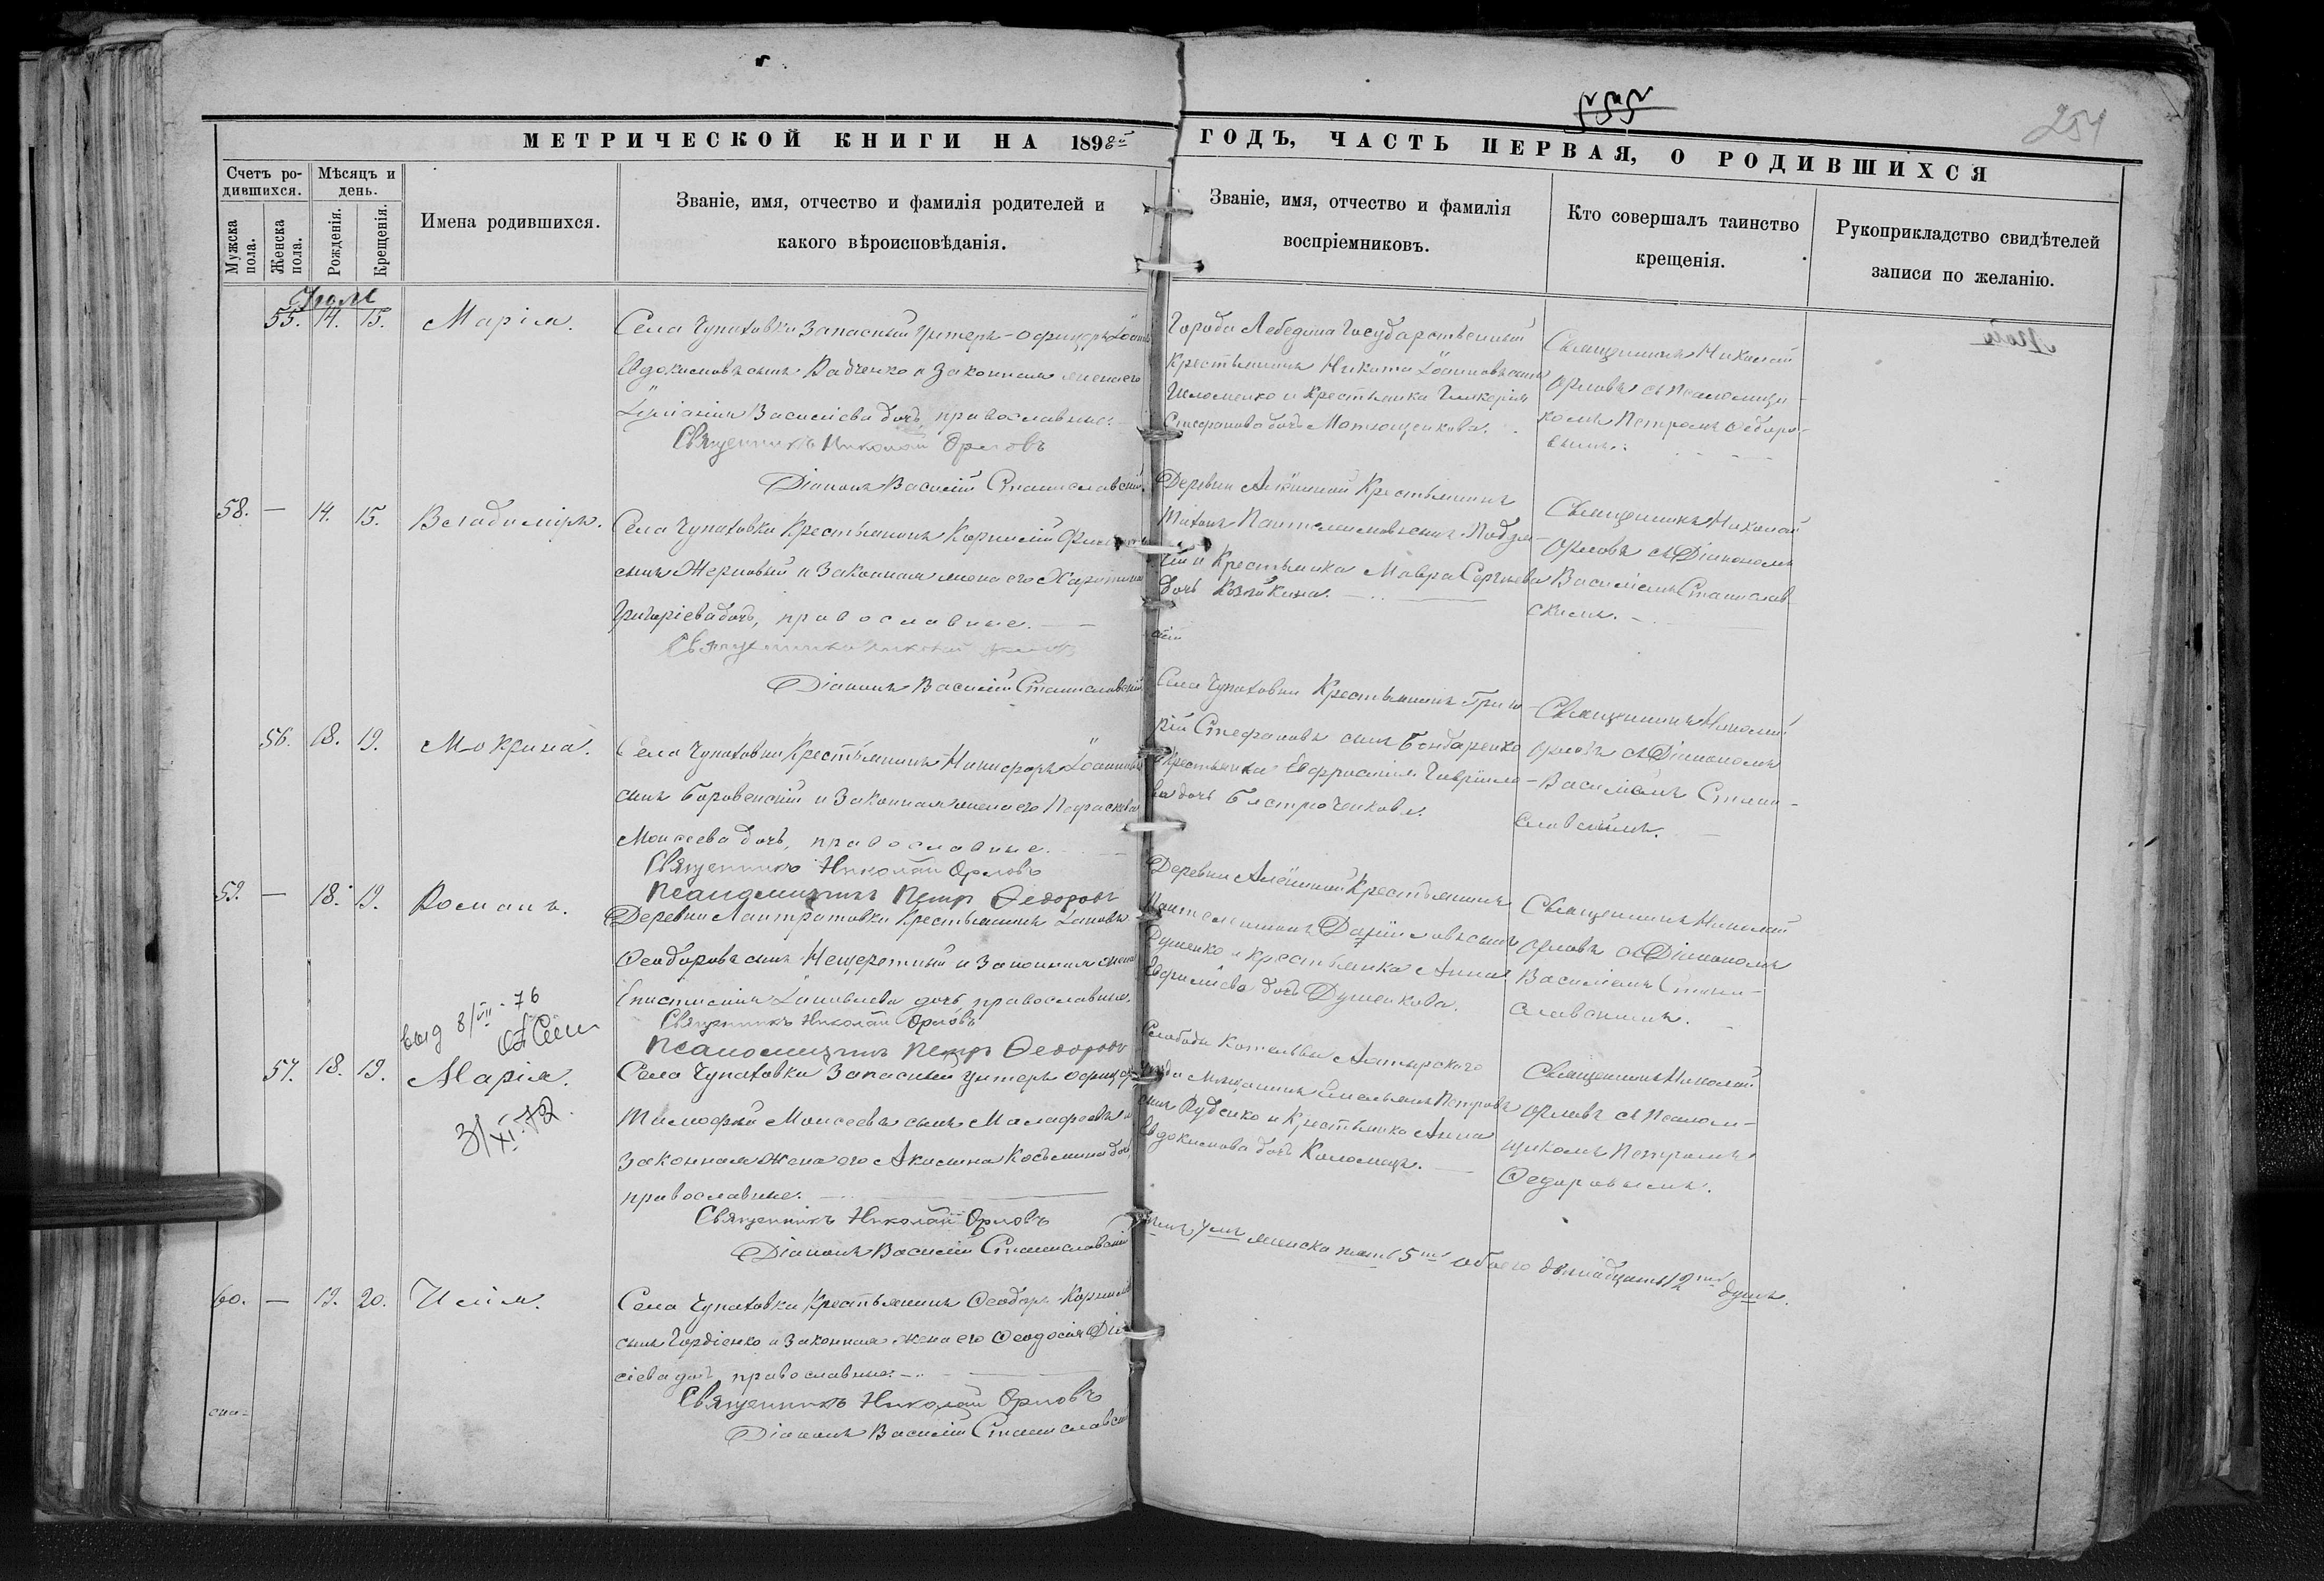 254
МЕТРИЧЕСКОЙ КНИГИ НА 1898й ГОДЪ, ЧАСТЬ ПЕРВАЯ, О РОДИВШИХСЯ
Счетъ родившихся.
Мужска пола.
Женска пола.
Мѣсяцъ и день.
Рожденія.
Крещенія.
Имена родившихся.
Званіе, имя, отчество и фамилія родителей и
какого вѣроисповѣданія.
Званіе, имя, отчество и фамилія
воспріемниковъ.
Кто совершалъ таинство
крещенія.
Рукоприкладство свидѣтелей
записи по желанію.
55. 14. 15. Марія.
Села Чупаховки запасный унтеръ-офицеръ Іоаннъ
Евдокимовъ сынъ Радченко и законная жена его
Іуліанія Василіева дочь, православные.
Священникъ Николай Орловъ
Діаконъ Василій Станиславскій
Города Лебедина Государственный
крестьянинъ Никита Іоанновъ сынъ
и крестьянка Гликерія
Стефанова дочь Матющенкова.
Священникъ Николай
Орловъ съ псаломщи-
комъ Петромъ Федоро-
вымъ.
58. — 14. 15. Владиміръ.
Села Чупаховки крестьянинъ Корнилій
сынъ Жерновый и законная жена его Харитина
Григоріева дочь, православные.
Священникъ Николай Орловъ
Діаконъ Василій Станиславскій
Деревни Алёшной крестьянинъ
Титъ Пантелеимоновъ сынъ
и крестьянка Мавра Сергіева
дочь Козйкина.
Священникъ Николай
Орловъ съ Діакономъ
Василіемъ Станислав-
скимъ.
56. 18. 19. Мокрина.
Села Чупаховки крестьянинъ Никифоръ Іоанновъ
сынъ Боровенскій и законная жена его Параскева
Моисеева дочь, православные.
Священникъ Николай Орловъ
Псаломщикъ Петръ Федоровъ
Села Чупаховки крестьянинъ Григо-
рій Стефановъ сынъ Бондаренко
и крестьянка Евфросинія Гавріило-
ва дочь Быстроченкова.
Священникъ Николай
Орловъ съ Діакономъ
Василіемъ Стани-
славскимъ.
59. — 18. 19. Романъ.
Деревни Лантратовки крестьянинъ Іаковъ
Феодоровъ сынъ Нещеретный и законная жена
Епистимія Іаковлева дочь, православные.
Священникъ Николай Орловъ
Псаломщикъ Петръ Федоровъ
Деревни Алёшной крестьянинъ
Пантелеимонъ Даніиловъ сынъ
Душенко и крестьянка Анна
дочь Душенкова.
Священникъ Николай
Орловъ съ Діакономъ
Василіемъ Стани-
славскимъ.
выд 8/VII-76
57. 18. 19. Марія.
3/XI-72.
Села Чупаховки запасный унтеръ офицеръ
Тимофей Моисеевъ сынъ Малафеевъ и
законная жена его Акилина Косьмина дочь,
православные.
Священникъ Николай Орловъ
Діаконъ Василій Станиславскій
Слободы Котельвы Ахтырскаго
уѣзда мѣщанинъ Емельянъ Петровъ
сынъ Руденко и крестьянка Анна
Евдокимова дочь Коломецъ.
Священникъ Николай
Орловъ съ псалом-
щикомъ Петромъ
Федоровымъ.
60. — 19. 20. Илія.
Села Чупаховки крестьянинъ Феодоръ Корнилі
сынъ Гордіенко и законная жена его Феодосія
сіева дочь православные.
Священникъ Николай Орловъ
Діаконъ Василій Станиславскій
женска пять 5ть обоего двѣнадцать 12ть душъ.